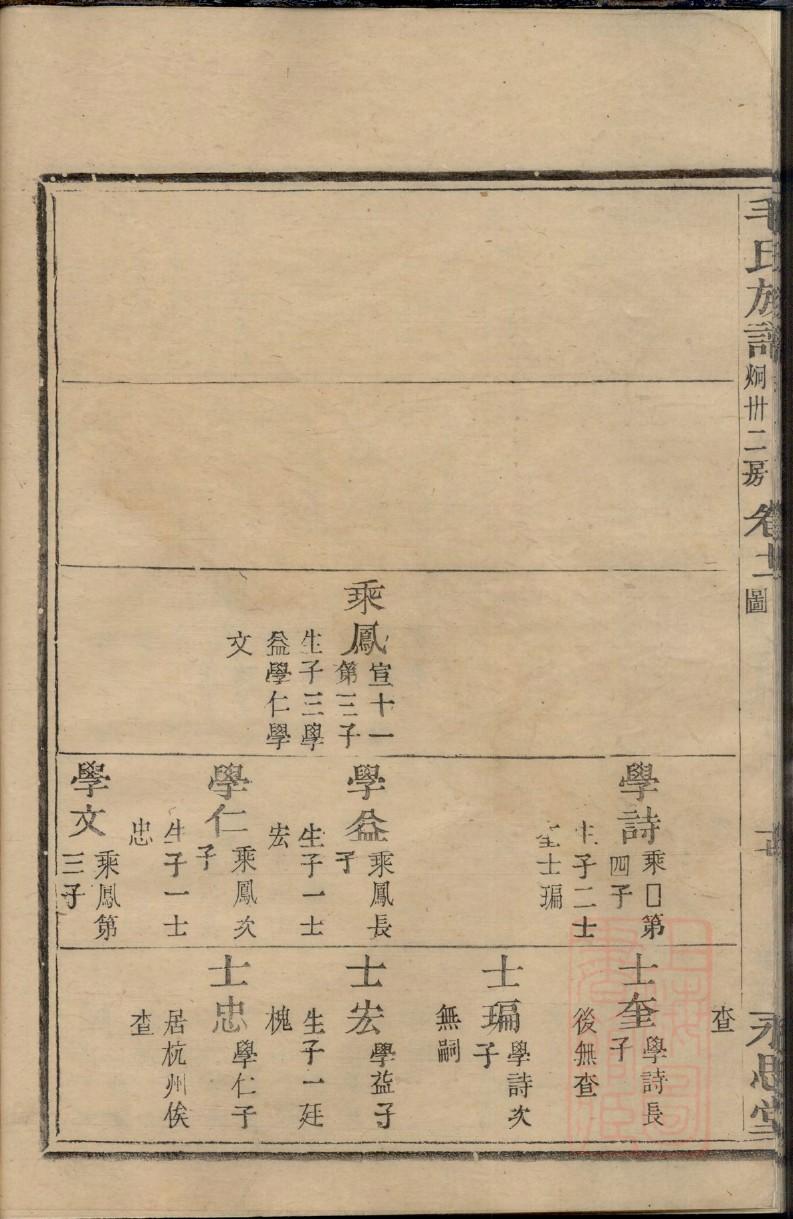 毛氏族譜 炯卅二房 卷十二 圖
永思堂
乘鳳 宣十一
第三子
生子三學
益學仁學
文
學詩 乘□第
四子
生子二士
奎士㻞
學益 乘鳳長
子
生子一士
宏
學仁 乘鳳次
子
生子一士
忠
學文 乘鳳第
三子
查
士奎 學詩長
子
後無查
士㻞 學詩次
子
無嗣
士宏 學益子
生子一廷
槐
士忠 學仁子
居杭州俟
查